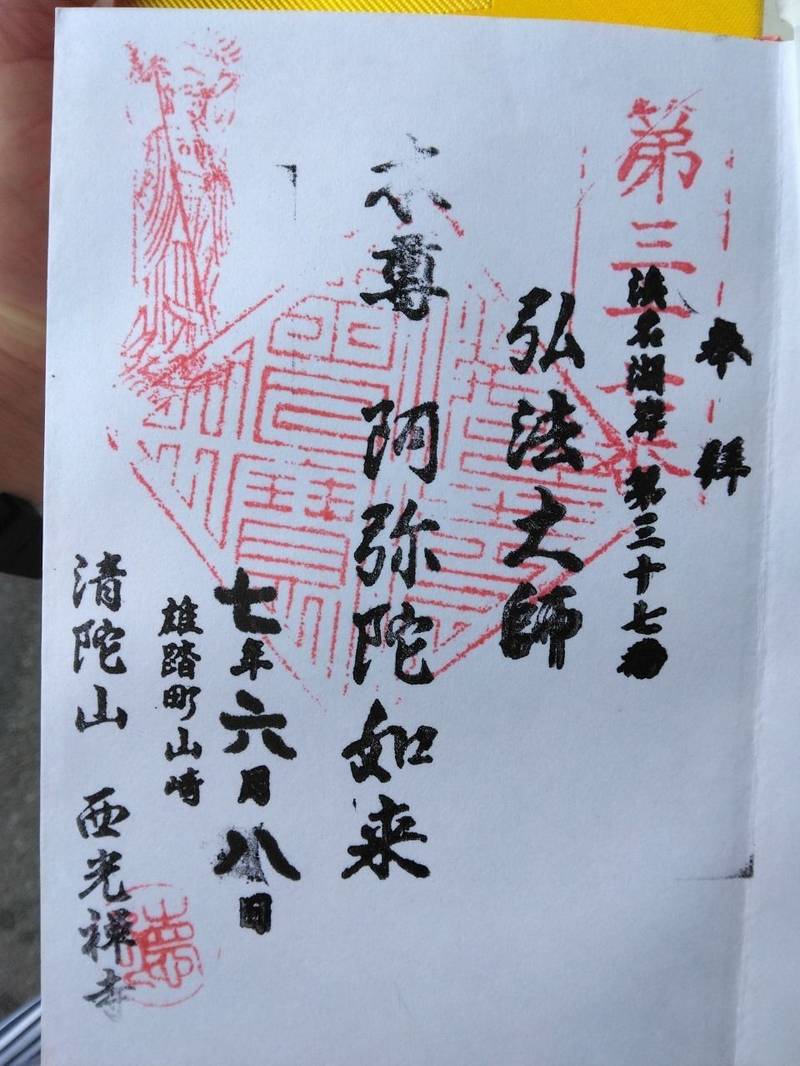 奉拝
第三十七番
浜名湖岸 第三十七番
弘法大師
本尊 阿弥陀如来
七年六月八日
雄踏町山崎
清陀山 西光禅寺